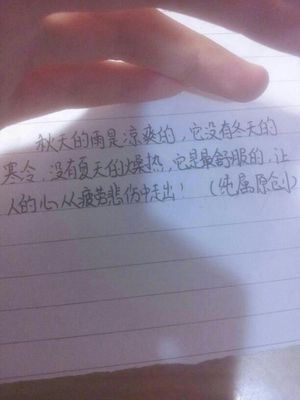 秋天的雨是凉爽的，它没有冬天的
寒冷，没有夏天的燥热，它是最舒服的，让
人的心从疲劳悲伤中走出！（纯属原创）